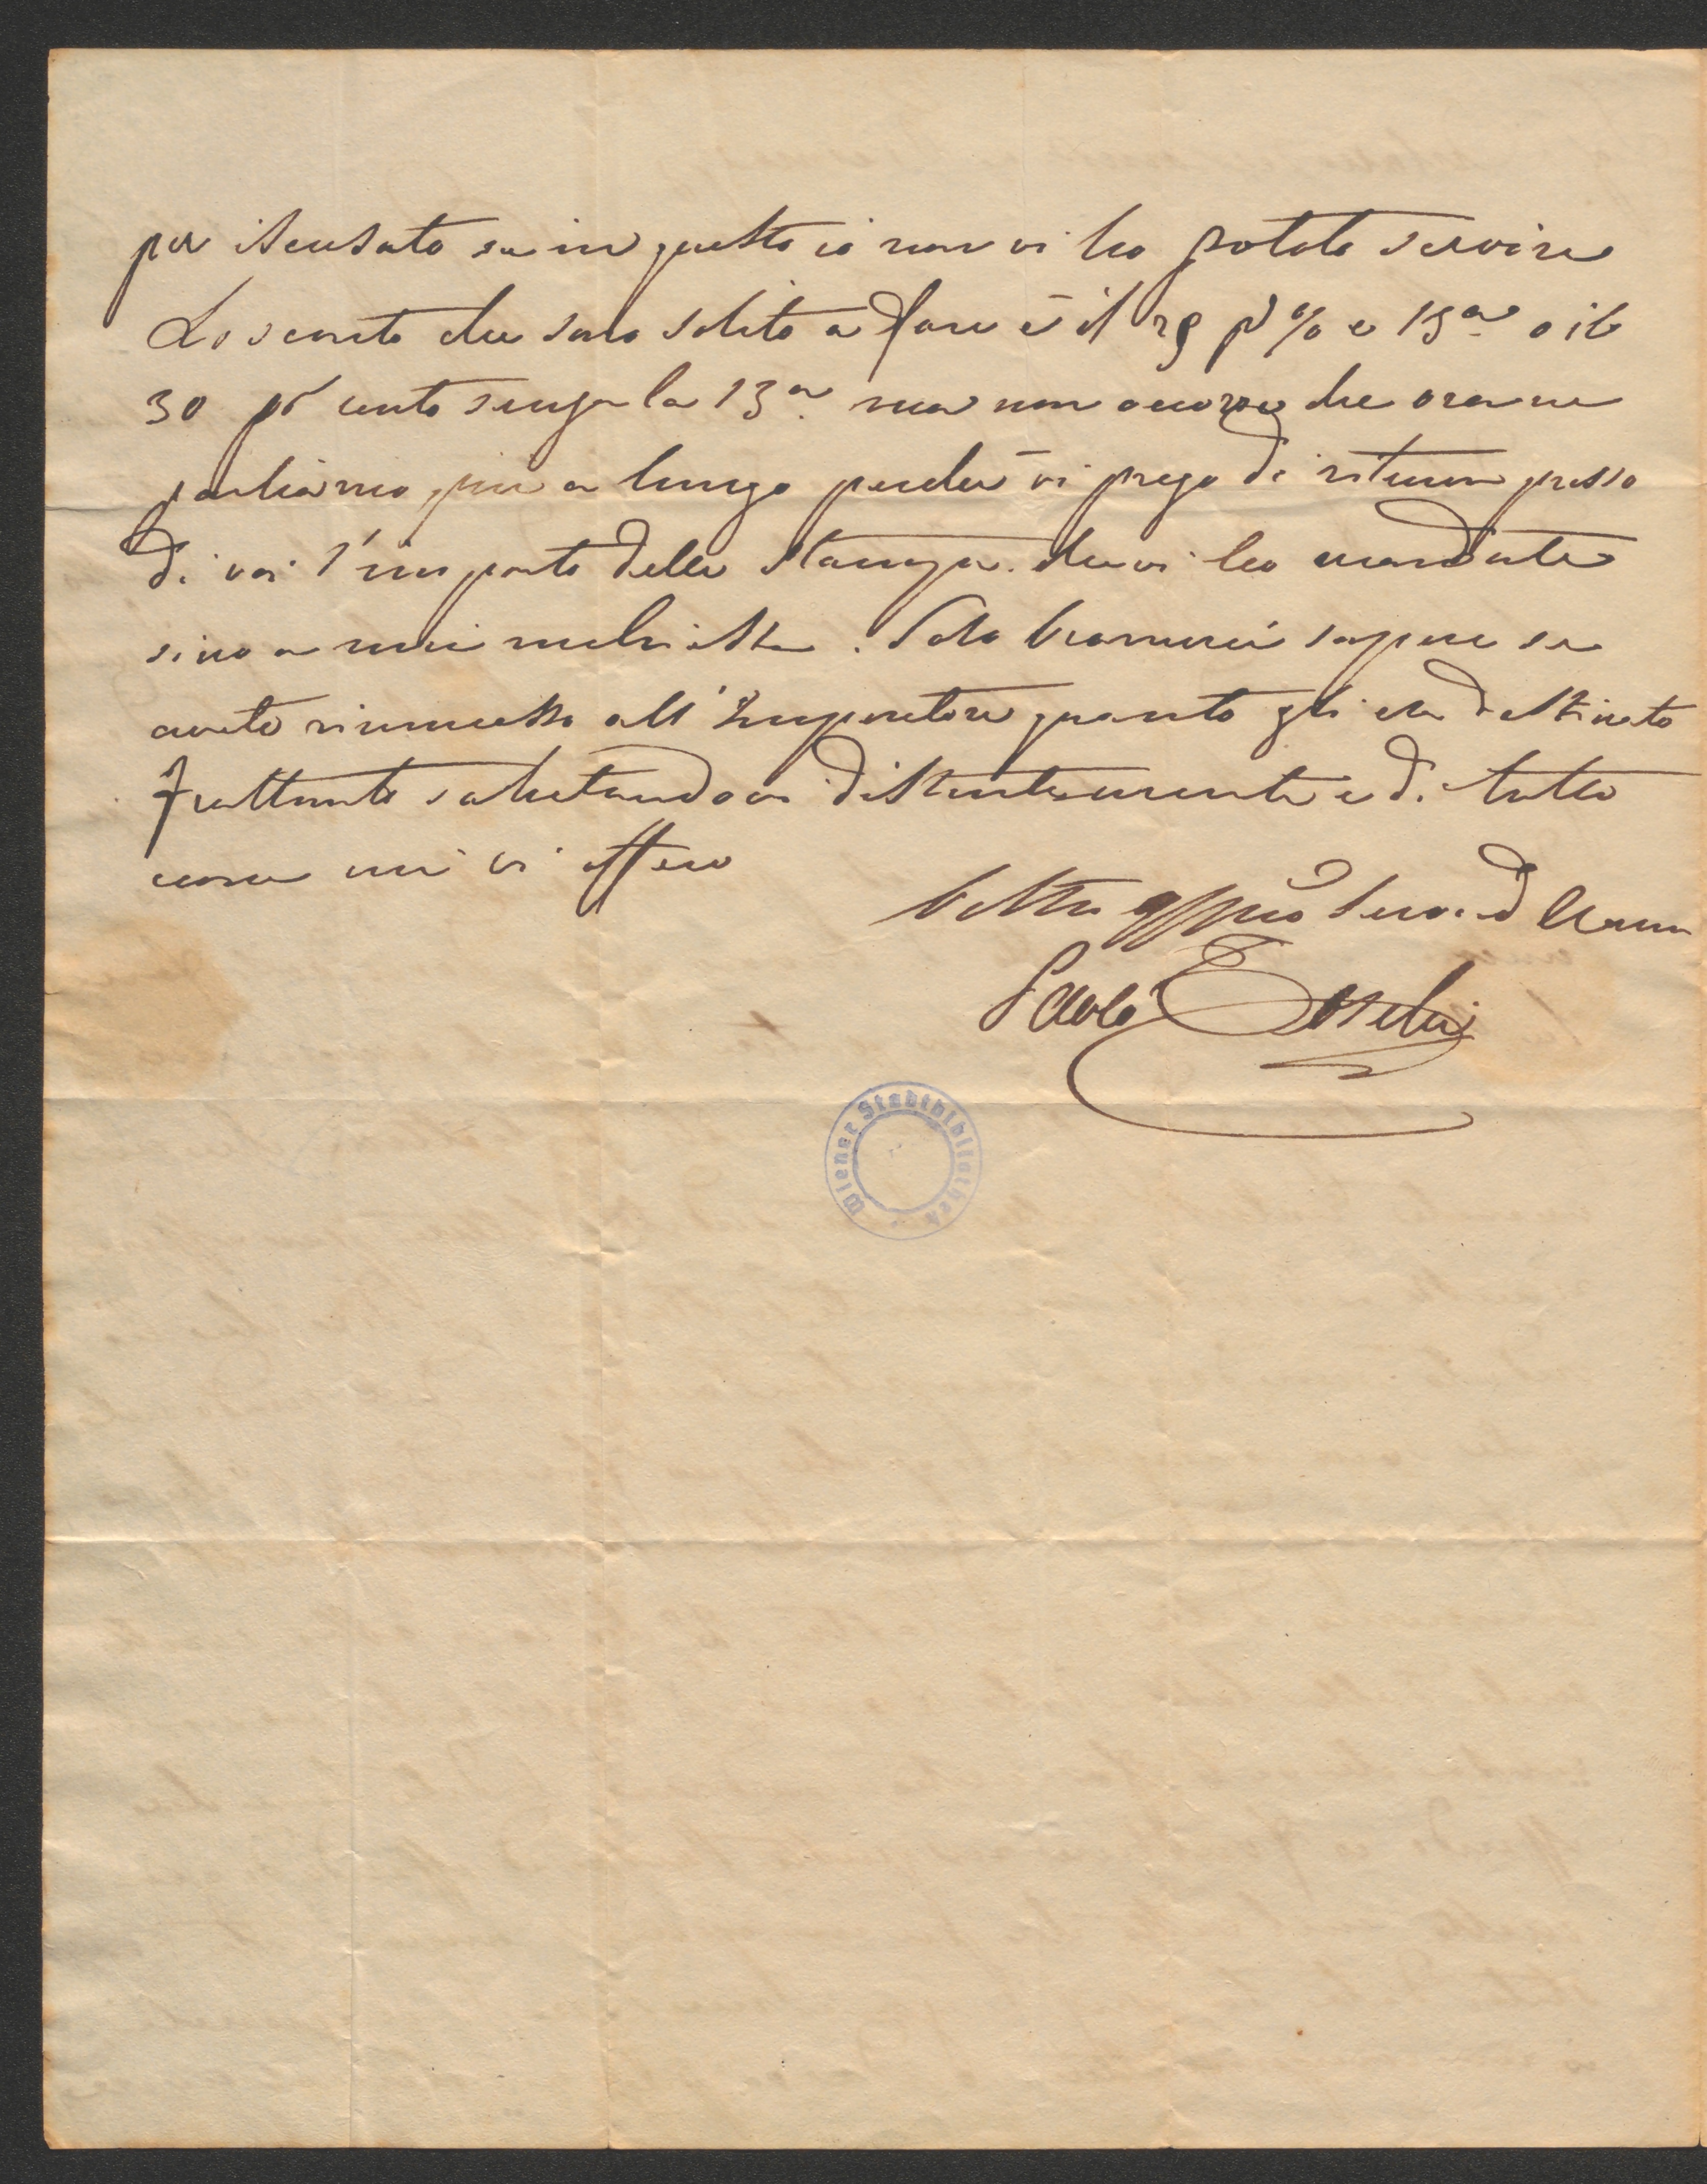 per iscusato se in questo io non vi ho potuto servire
Lo sconto che sono solito a fare è il 25 p % e 13a o il
30 pr cento senza la 13a. ma non occorre che ora ne
parliamo piu a lungo perchè vi prego di ritener presso
di voi l'importo delle stampe che vi ho mandate
sino a mia richiesta. Solo bramerei sapere se
avete rimmesso all'Imperatore quanto gli era destinato
Frattanto salutandovi distintamente e di tutto
cuore mi vi offero
Vostro Servid
Paolo
Wiener Stadtbibliothek